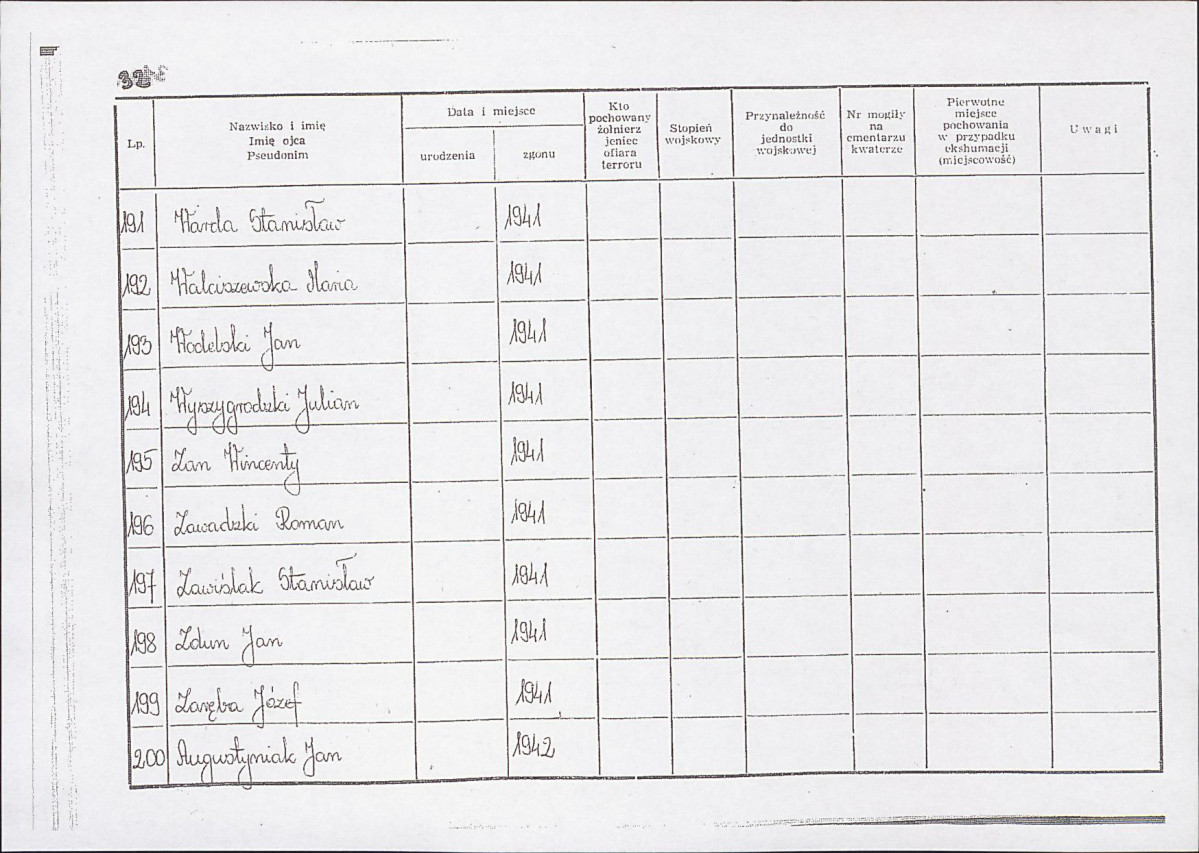 32
Lp.
Nazwisko i imię
Imię ojca
Pseudonim
Data i miejsce
urodzenia
zgonu
Kto
pochowany
żołnierz
jeniec
ofiara
terroru
Stopień
wojskowy
Przynależność
do
jednostki
wojskowej
Nr mogiły
na
cmentarzu
kwaterze
Pierwotne
miejsce
pochowania
w przypadku
ekshumacji
(miejscowość)
Uwagi
191 Warda Stanisław 1941
192 Walciszewska Maria 1941
193 Wodelski Jan 1941
194 Wyszygrodzki Julian 1941
195 Zan Wincenty 1941
196 Zawadzki Roman 1941
197 Zawiślak Stanisław 1941
198 Zdun Jan 1941
199 Zaręba Józef 1941
200 Augustyniak Jan 1942